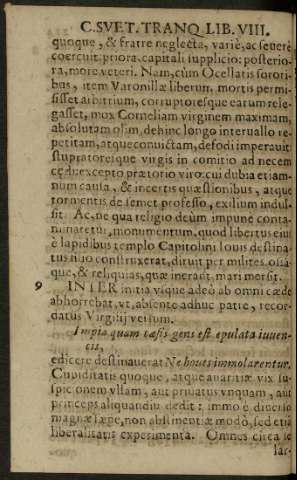 C. SVET. TRANQ. LIB. VIII.
quoque, & fratre neglecta, variè, ac seuerè
coërcuit: priora, capitali supplicio: posterio-
ra, more veteri. Nam, cùm Ocellatis sorori-
bus, item Varonillæ liberum mortis permi-
sisset arbitrium, corruptoresque earum rele-
gasset, mox Corneliam virginem maximam,
absolutam olim, dehinc longo interuallo re-
petitam, atque conuictam, defodi imperauit:
stupratoresque virgis in comitio ad necem
cædi: excepto prætorio viro: cui dubia etiam-
num causa, & incertis quæstionibus, atque
tormentis de semet professo, exilium indul-
sit. Ac, ne qua religio deûm impune conta-
minaretur, monumentum, quod libertus eius
è lapidibus templo Capitolini Iouis destina-
tis filio construxerat, diruit per milites: ossa-
que, & reliquias, quæ inerant, mari mersit.
9 INTER initia vsque adeò ab omni cæde
abhorrebat, vt, absente adhuc patre, recor-
datus Virgilij versum.
Impia quam cæsis gens est epulata iuuen-
cis,
edicere destinauerat Ne boues immolarentur.
Cupiditatis quoque, atque auaritiæ vix su-
spicionem vllam, aut priuatus vnquam, aut
princeps aliquandiu dedit: immo è diuerso
magnæ sæpe, non abstinentiæ modò, sed etiā
liberalitatis experimenta. Omnes circa se
lar-